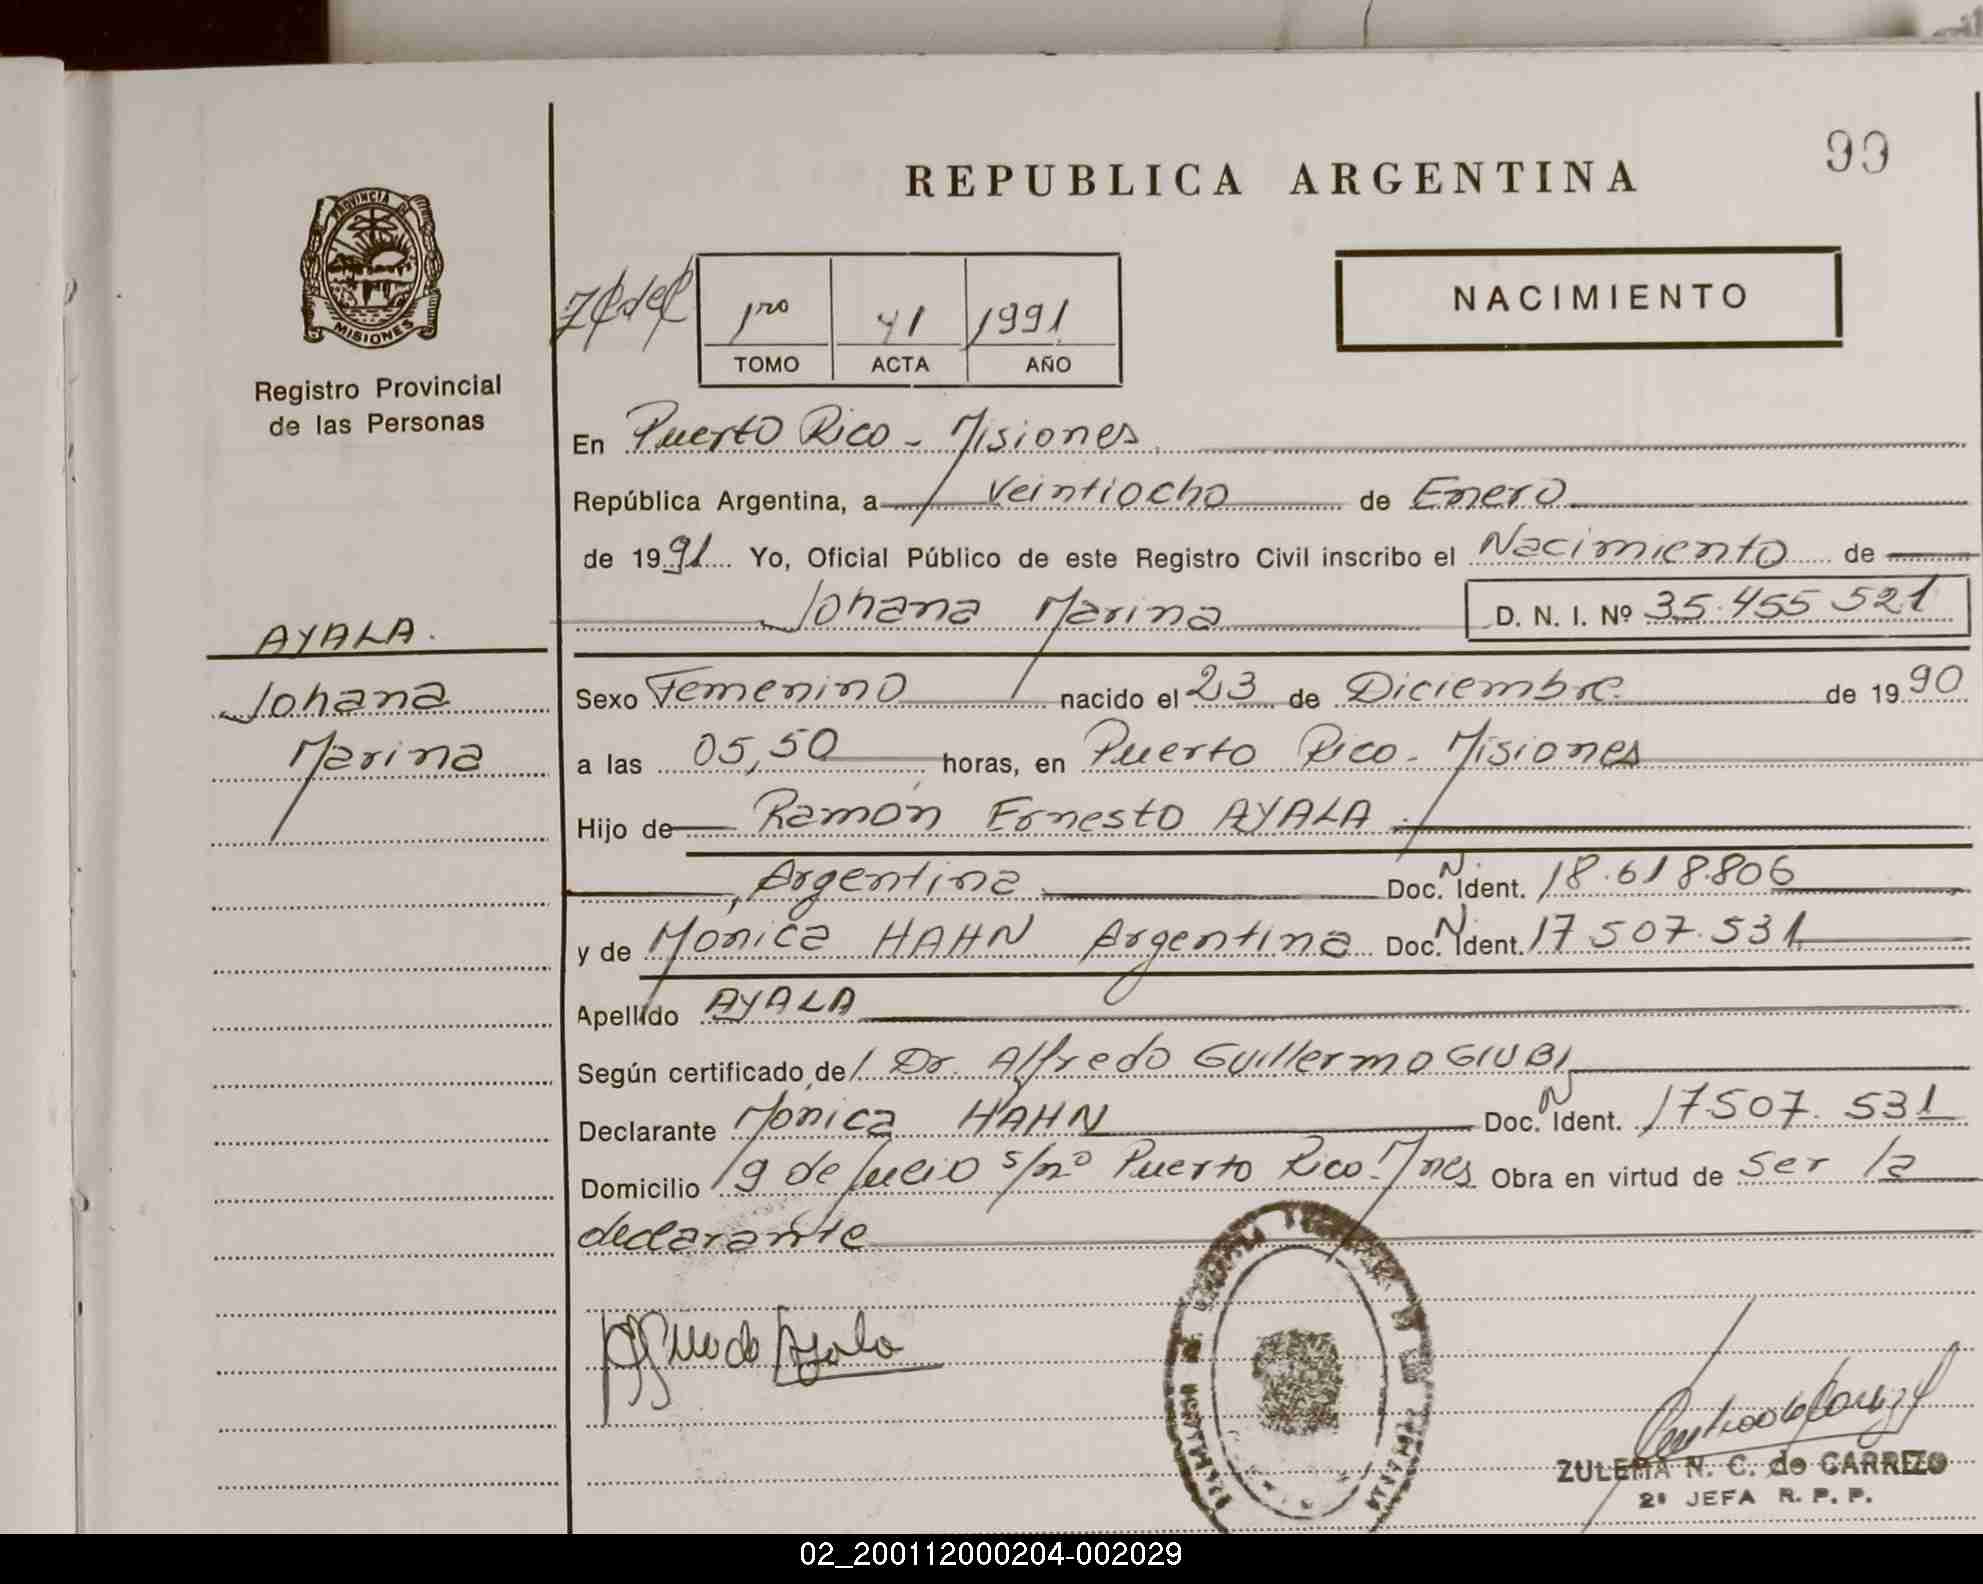 99
REPUBLICA ARGENTINA
PROVINCIA DE
MISIONES
Registro Provincial
de las Personas
1ro 41 1991
TOMO ACTA AÑO
NACIMIENTO
En Puerto Rico - Misiones
República Argentina, a veintiocho de Enero
de 1991 Yo, Oficial Público de este Registro Civil inscribo el Nacimiento de
Johana Marina D. N. I. Nº 35.455 521
AYALA.
Johana
Marina
Sexo Femenino nacido el 23 de Diciembre de 1990
a las 05,50 horas, en Puerto Rico - Misiones
Hijo de Ramón Ernesto AYALA
Argentina Doc. N. Ident. 18.618.806
y de Mónica HAHN Argentina Doc. N. Ident. 17 507.531
Apellido AYALA
Según certificado de Dr. Alfredo Guillermo GIUBI
Declarante Mónica HAHN Doc. N Ident. 17507.531
Domicilio 9 de Julio s/nº Puerto Rico. Mnes Obra en virtud de ser la
declarante
Ayala
ZULEMA N. C. de CARRIZO
2ª JEFA R. P. P.
02_200112000204-002029